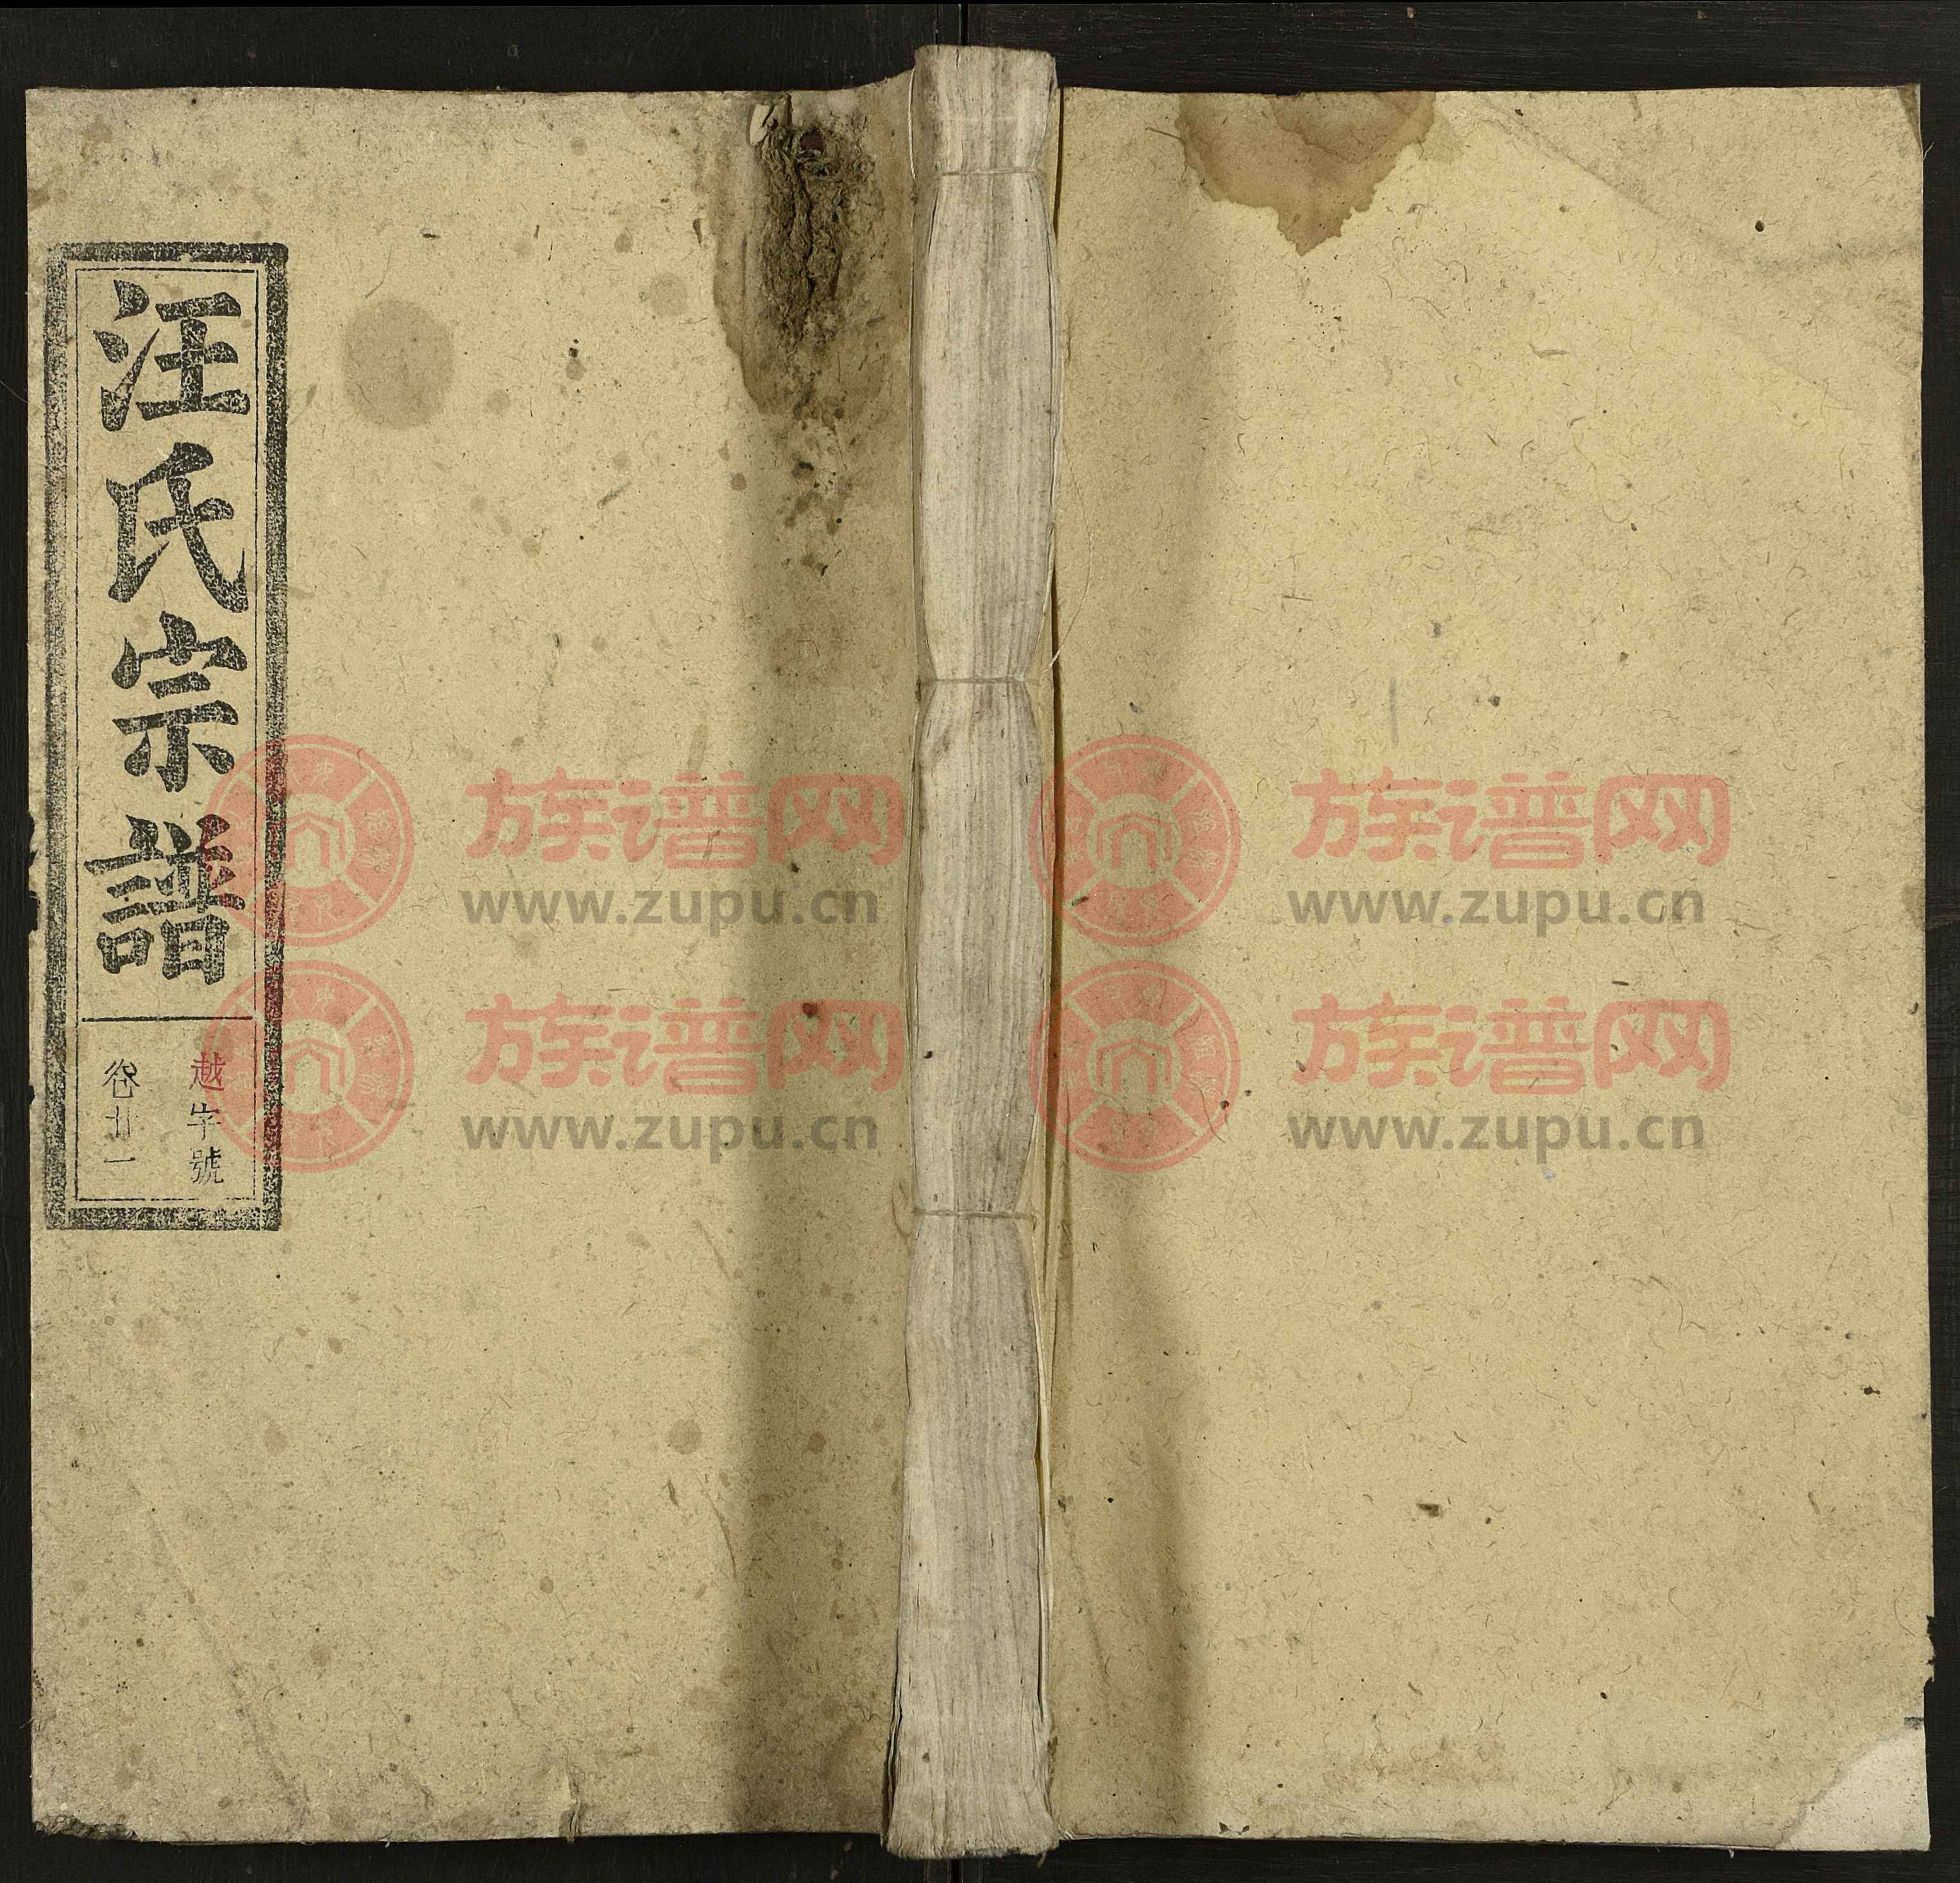 汪氏宗譜
越字號
卷廿一
族谱网
www.zupu.cn
族谱网
www.zupu.cn
族谱网
www.zupu.cn
族谱网
www.zupu.cn